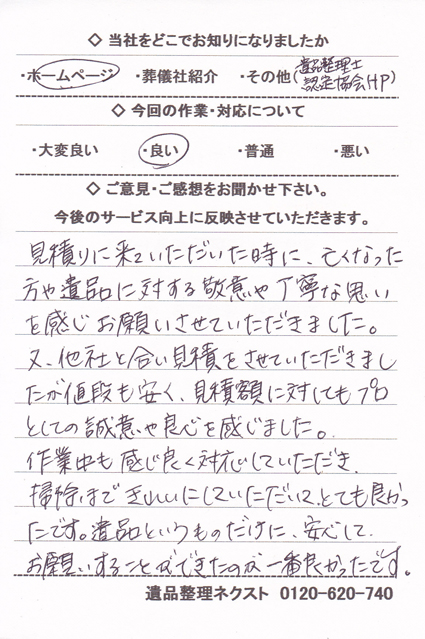 ◇ 当社をどこでお知りになりましたか
・ホームページ ・葬儀社紹介 ・その他(遺品整理士認定協会HP)
◇ 今回の作業・対応について
・大変良い ・良い ・普通 ・悪い
◇ ご意見・ご感想をお聞かせ下さい。
今後のサービス向上に反映させていただきます。
見積りに来ていただいた時に、亡くなった
方や遺品に対する敬意や丁寧な思い
を感じお願いさせていただきました。
又、他社と合い見積をさせていただきまし
たが値段も安く、見積額に対してもプロ
としての誠意や良心を感じました。
作業中も感じ良く対応していただき、
掃除まできれいにしていただいて、とても良かっ
たです。遺品というものだけに、安心して
お願いすることができたのが一番良かったです。
遺品整理ネクスト 0120-620-740